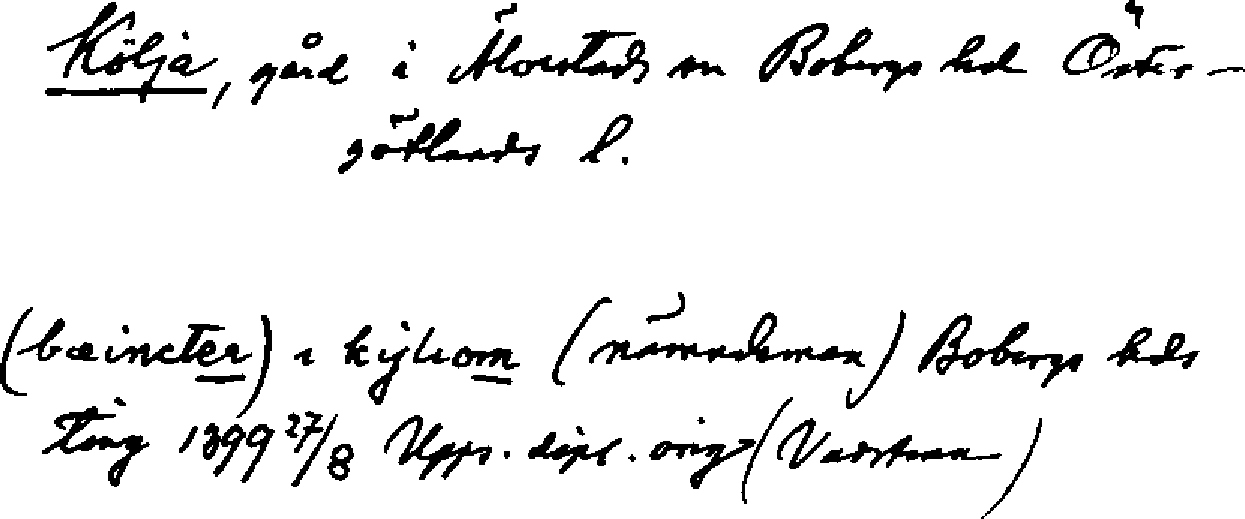 Kölja, gård i Älvestads sn Bobergs hd Öster-
götlands l.
(bæincter) i kyliom (nämndeman) Bobergs hds
ting 1399 27/8 Upps. dipl. orig (Vadstena)